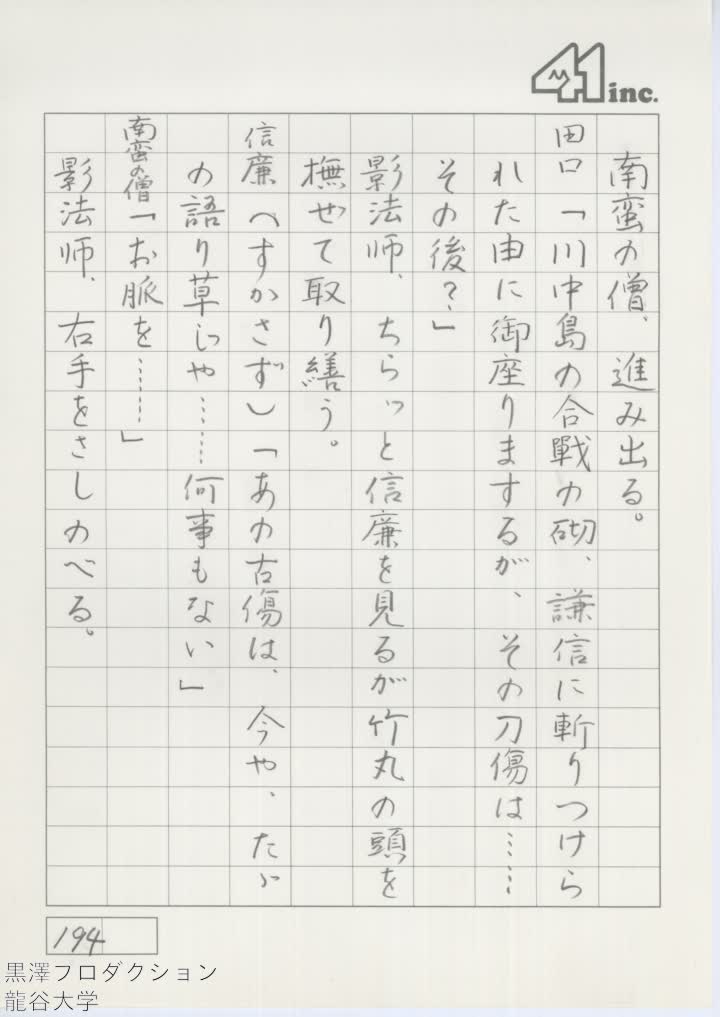 41 inc.
南蛮の僧、進み出る。
田口「川中島の合戦の砌、謙信に斬りつけら
れた由に御座りまするが、その刀傷は……
その後？」
影法師、ちらッと信廉を見るが竹丸の頭を
撫ぜて取り繕う。
信廉(すかさず)「あの古傷は、今や、たゞ
の語り草じゃ……何事もない」
南蛮の僧「お脈を……」
影法師、右手をさしのべる。
194
黒澤プロダクション
龍谷大学